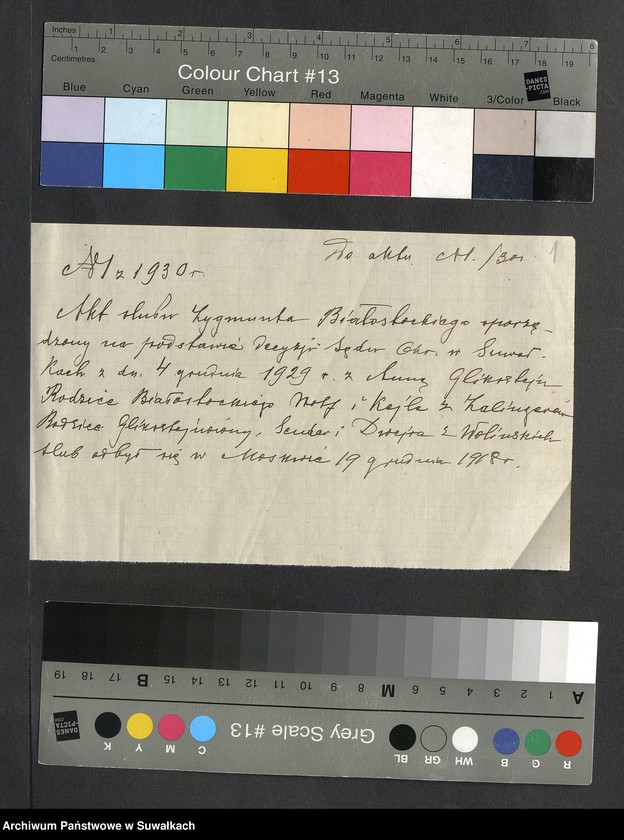 Inches 1 2 3 4 5 6 7 8
Centimetres 1 2 3 4 5 6 7 8 9 10 11 12 13 14 15 16 17 18 19
Colour Chart #13
DANES-PICTA.COM
Blue Cyan Green Yellow Red Magenta White 3/Color Black
Do aktu № 1/30 r. 1
№ 1 z 1930 r.
Akt ślubu Zygmunta Białostockiego sporzą-
dzony na podstawie decyzji Sądu Okr. w Suwał-
kach z dn. 4 grudnia 1929 r. z Anną Gliksztejn
Rodzice Białostockiego Wolf i Kejla z
Rodzice i Dwejra z Wolińskich
ślub odbył się w Moskwie 19 grudnia 1918 r.
A 1 2 3 4 5 6 M 8 9 10 11 12 13 14 15 B 17 18 19
R G B WH GR BL
Grey Scale #13
C M Y K
DANES-PICTA.COM
Archiwum Państwowe w Suwałkach